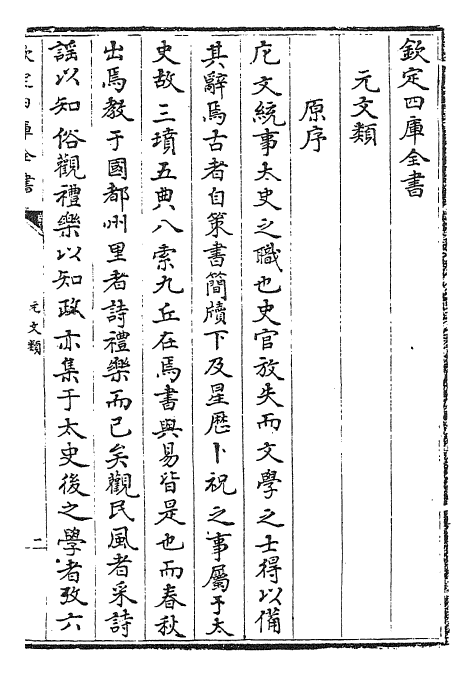 欽定四庫全書
元文類
原序
庀文統事太史之職也史官放失而文學之士得以備
其辭焉古者自策書簡牘下及星厯卜祝之事屬于太
史故三墳五典八索九丘在焉書與易皆是也而春秋
出焉教于國都州里者詩禮樂而已矣觀民風者采詩
謡以知俗觀禮樂以知政亦集于太史後之學者攷六
欽定四庫全書
元文類
二